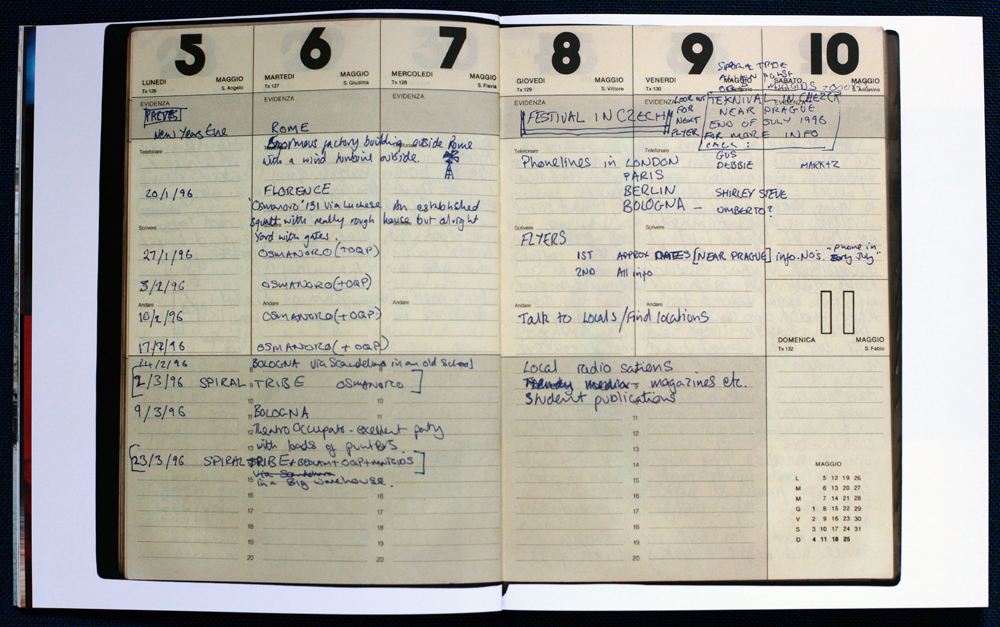 5
LUNEDI MAGGIO
Tx 126 S. Angelo
EVIDENZA
PARTIES
New Years Eve
Telefonare
20/1/96
Scrivere
27/1/96
3/2/96
Andare
10/2/96
17/2/96
24/2/96
[2/3/96 SPIRAL TRIBE OSMANORO]
9/3/96
[23/3/96 SPIRAL TRIBE + BEDLAM + OQP + MUTOIDS]
6
MARTEDI MAGGIO
Tx 127 S. Giuditta
EVIDENZA
ROME
Enormous factory building outside Rome
with a wind turbine outside.
FLORENCE
"Osmanoro" 131 via Luchese An established
squatt with really rough house but alright
Yard with gates.
OSMANORO (+OQP)
OSMANORO (+OQP)
OSMANORO (+OQP)
OSMANORO (+ OQP)
BOLOGNA via Scandellara in an old School
BOLOGNA
Theatro Occupato - excellent party
with loads of punters.
via Scandellara
in a Big warehouse.
7
MERCOLEDI MAGGIO
Tx 128 S. Flavia
EVIDENZA
10
11
12
13
14
15
16
17
18
19
20
8
GIOVEDI MAGGIO
Tx 129 S. Vittore
EVIDENZA
FESTIVAL IN CZECH
Telefonare
Phonelines in LONDON
PARIS
BERLIN
BOLOGNA -
Scrivere
FLYERS
1ST APPROX DATES [NEAR PRAGUE] info. No's. "phone in
Early July"
2ND All info
Andare
Talk to Locals / Find locations
Local radio satiens
Trendy media - magazines etc.
Student publications
9
VENERDI MAGGIO
Tx 130
EVIDENZA
LOOK OUT
FOR
NEXT
FLYER
Telefonare
GUS
DEBBIE MARK+Z
SHIRLEY STEVE
UMBERTO?
Scrivere
Andare
11
12
13
14
15
16
17
18
19
20
10
SABATO MAGGIO
SPIRAL TRIBE
MUTOIDS
TEKNIVAL IN CHZECH
NEAR PRAGUE
END OF JULY 1996
FOR MORE INFO
CALL :
DOMENICA MAGGIO
Tx 132 S. Fabio
MAGGIO
L 5 12 19 26
M 6 13 20 27
M 7 14 21 28
G 1 8 15 22 29
V 2 9 16 23 30
S 3 10 17 24 31
D 4 11 18 25